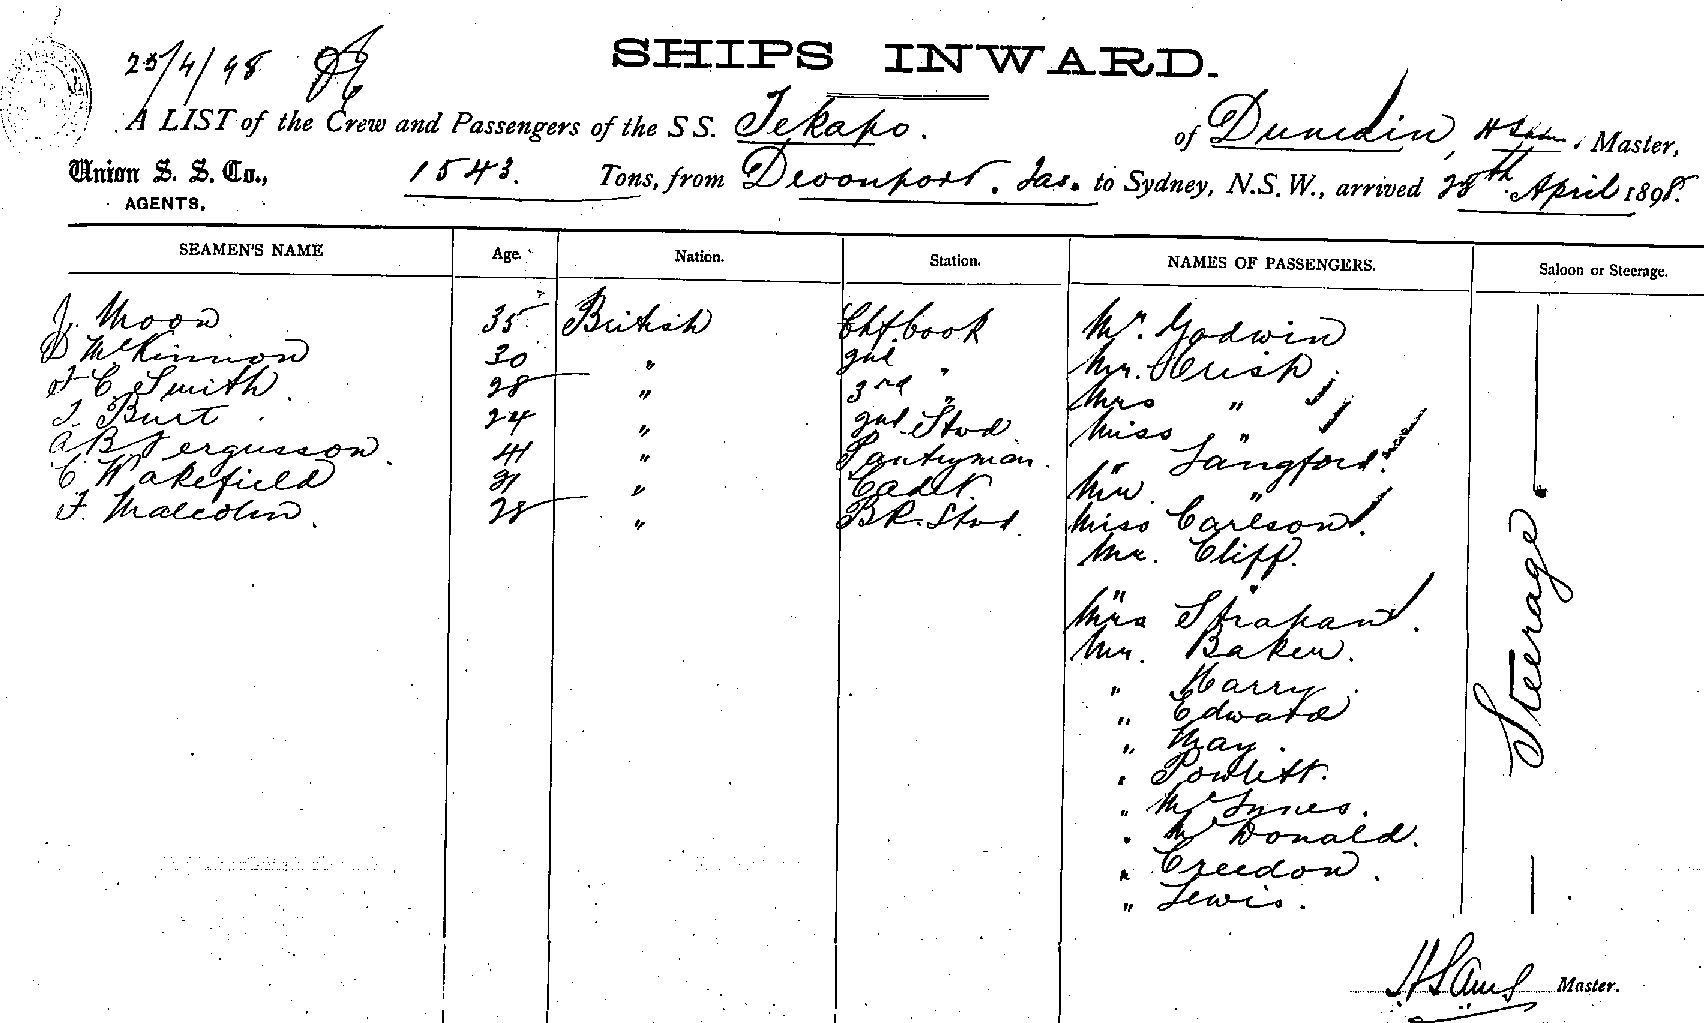 25/4/98
SHIPS INWARD.
A LIST of the Crew and Passengers of the S S. Tekapo. of Dunedin, Master,
Union S. S. Co., 1543. Tons, from Devonport. Tas. to Sydney, N.S.W., arrived 28th April 1898.
AGENTS,
SEAMEN'S NAME Age. Nation. Station. NAMES OF PASSENGERS. Saloon or Steerage.
J. Moon 35 British Chf. Cook Mr. Godwin
D McKinnon 30 " 2nd " Mr.
F C Smith 28 " 3rd " Mrs "
T. Burt 24 " 2nd Stwd. Miss "
A B Fergusson. 41 " Pantryman. " Langford.
C Wakefield 21 " Cadet. Mr. "
F. Malcolm. 28 " BR. Stwd. Miss Carlson.
Mr. Cliff.
" "
Mrs Strahan.
Mr. Baker.
" Harry.
" Edward
" May.
" Powlett.
" McInnes.
" McDonald.
" Creedon.
" Lewis.
Steerage
Master.